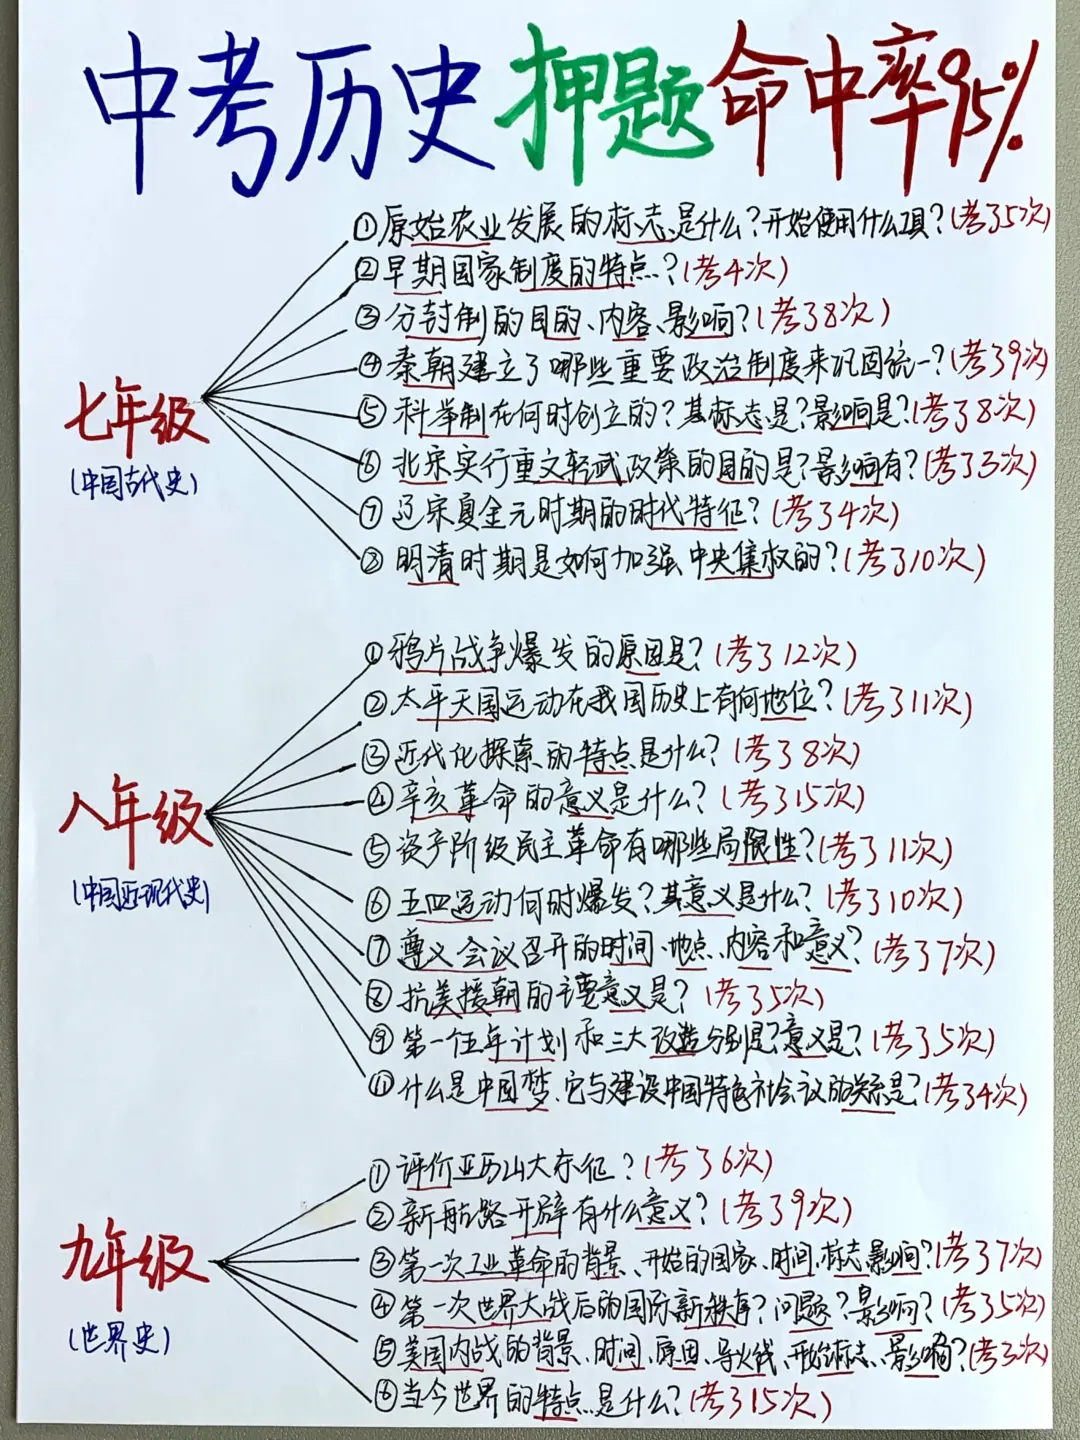 中考历史押题命中率95%
七年级
(中国古代史)
①原始农业发展的标志是什么?开始使用什么工具?(考了5次)
②早期国家制度的特点?(考4次)
③分封制的目的、内容、影响?(考了8次)
④秦朝建立了哪些重要政治制度来巩固统一?(考了9次)
⑤科举制在何时创立的?其标志是?影响是?(考了8次)
⑥北宋实行重文轻武政策的目的是?影响有?(考了3次)
⑦辽宋夏金元时期的时代特征?(考了4次)
⑧明清时期是如何加强中央集权的?(考了10次)
八年级
(中国近现代史)
①鸦片战争爆发的原因是?(考了12次)
②太平天国运动在我国历史上有何地位?(考了11次)
③近代化探索的特点是什么?(考了8次)
④辛亥革命的意义是什么?(考了15次)
⑤资产阶级民主革命有哪些局限性?(考了11次)
⑥五四运动何时爆发?其意义是什么?(考了10次)
⑦遵义会议召开的时间、地点、内容和意义?(考了7次)
⑧抗美援朝的主要意义是?(考了5次)
⑨第一个五年计划和三大改造分别是?意义是?(考了5次)
什么是中国梦,它与建设中国特色社会议的关系是?(考了4次)
九年级
(世界史)
①评价亚历山大东征?(考了6次)
②新航路开辟有什么意义?(考了9次)
③第一次工业革命的背景、开始的国家、时间、标志、影响?(考了7次)
④第一次世界大战后的国际新秩序?问题?影响?(考了5次)
⑤美国内战的背景、时间、原因、导火线、标志、影响?(考了3次)
⑥当今世界的特点是什么?(考了15次)